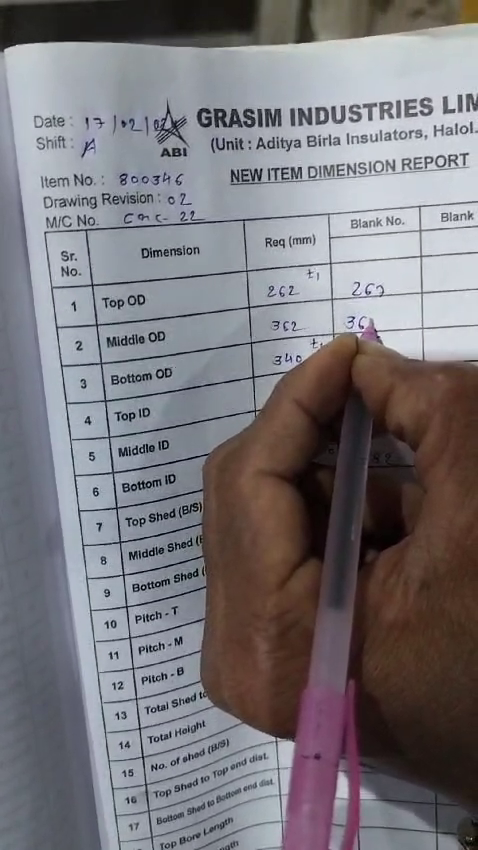 Date : 17/02/02
GRASIM INDUSTRIES LIM
Shift : A
ABI
(Unit : Aditya Birla Insulators, Halol.
Item No. : 800346
NEW ITEM DIMENSION REPORT
Drawing Revision : 02
M/C No. CNC- 22
Sr. No. Dimension Req (mm) Blank No. Blank
1 Top OD 262 ±1 263
2 Middle OD 362 36
3 Bottom OD 340
4 Top ID
5 Middle ID
6 Bottom ID
7 Top Shed (B/S)
8 Middle Shed (
9 Bottom Shed (
10 Pitch - T
11 Pitch - M
12 Pitch - B
13 Total Shed to
14 Total Height
15 No. of shed (B/S)
16 Top Shed to Top end dist.
17 Bottom Shed to Bottom end dist.
Top Bore Length